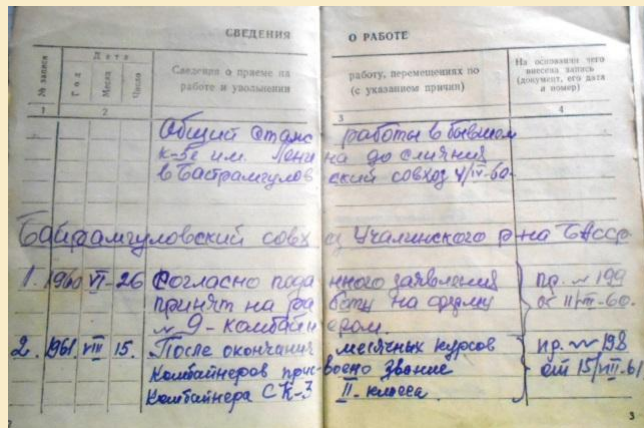 СВЕДЕНИЯ О РАБОТЕ
№ записи
Дата
Год
Месяц
Число
Сведения о приеме на работу, перемещениях по
работе и увольнении (с указанием причин)
На основании чего
внесена запись
(документ, его дата
и номер)
1 2 3 4
Общий стаж работы в бывшем
к-зе им. Ленина до слияния
в Байрамгуловский совхоз 4/IV-60.
Байрамгуловский совхоз Учалинского р-на БАССР
1. 1960 VI-26 Согласно поданного заявления пр. № 199
принят на работу на ферму от 11/VI-60.
№ 9 - комбайнером.
2. 1961 VIII 15. После окончания месячных курсов пр. № 198
комбайнеров присвоено звание от 15/VIII-61
комбайнера СК-3 II-класса.
3